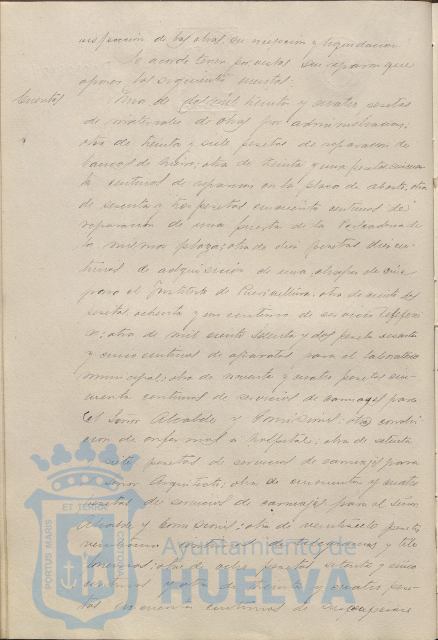 inspección de las obras, su recepción y liquidación
Se acordó tener por vistas sin reparos que
aponer las siguientes cuentas.
Cuentas
Una de dos mil treinta y cuatro pesetas
de materiales de obras por administración;
otra de treinta y siete pesetas de reparación de
bancos de hierro; otra de treinta y una pesetas cincuen
ta centimos de reparación en la plaza de abastos; otra
de sesenta y tres pesetas cincuenta centimos de
reparación de una puerta de la Pescaderia de
la misma plaza; otra de diez pesetas diez cen
timos de adquisición de una
para el Instituto de Puericultura; otra de ciento dos
pesetas ochenta y un centimos de servicio telefoni
co; otra de mil ciento sesenta y dos pesetas sesenta
y cinco centimos de aparatos para el laboratorio
municipal; otra de noventa y cuatro pesetas cin
cuenta centimos de servicios de carruajes para
el Señor Alcalde y Comisiones; otra conduc
cion de enfermos a hospitales; otra de setenta
y siete pesetas de servicios de carruajes para
Señor Arquitecto; otra de cincuenta y cuatro
pesetas de servicios de carruajes para el señor
Alcalde y Comisiones; otra de veintisiete pesetas
centimos de telegramas y tele
fonemas; otra de ocho pesetas setenta y cinco
centimos y otra de treinta y cuatro pese
tas centimos de suscripciones
ET TERRAE
PORTUS MARIS
CUSTODIA
Ayuntamiento de
HUELVA